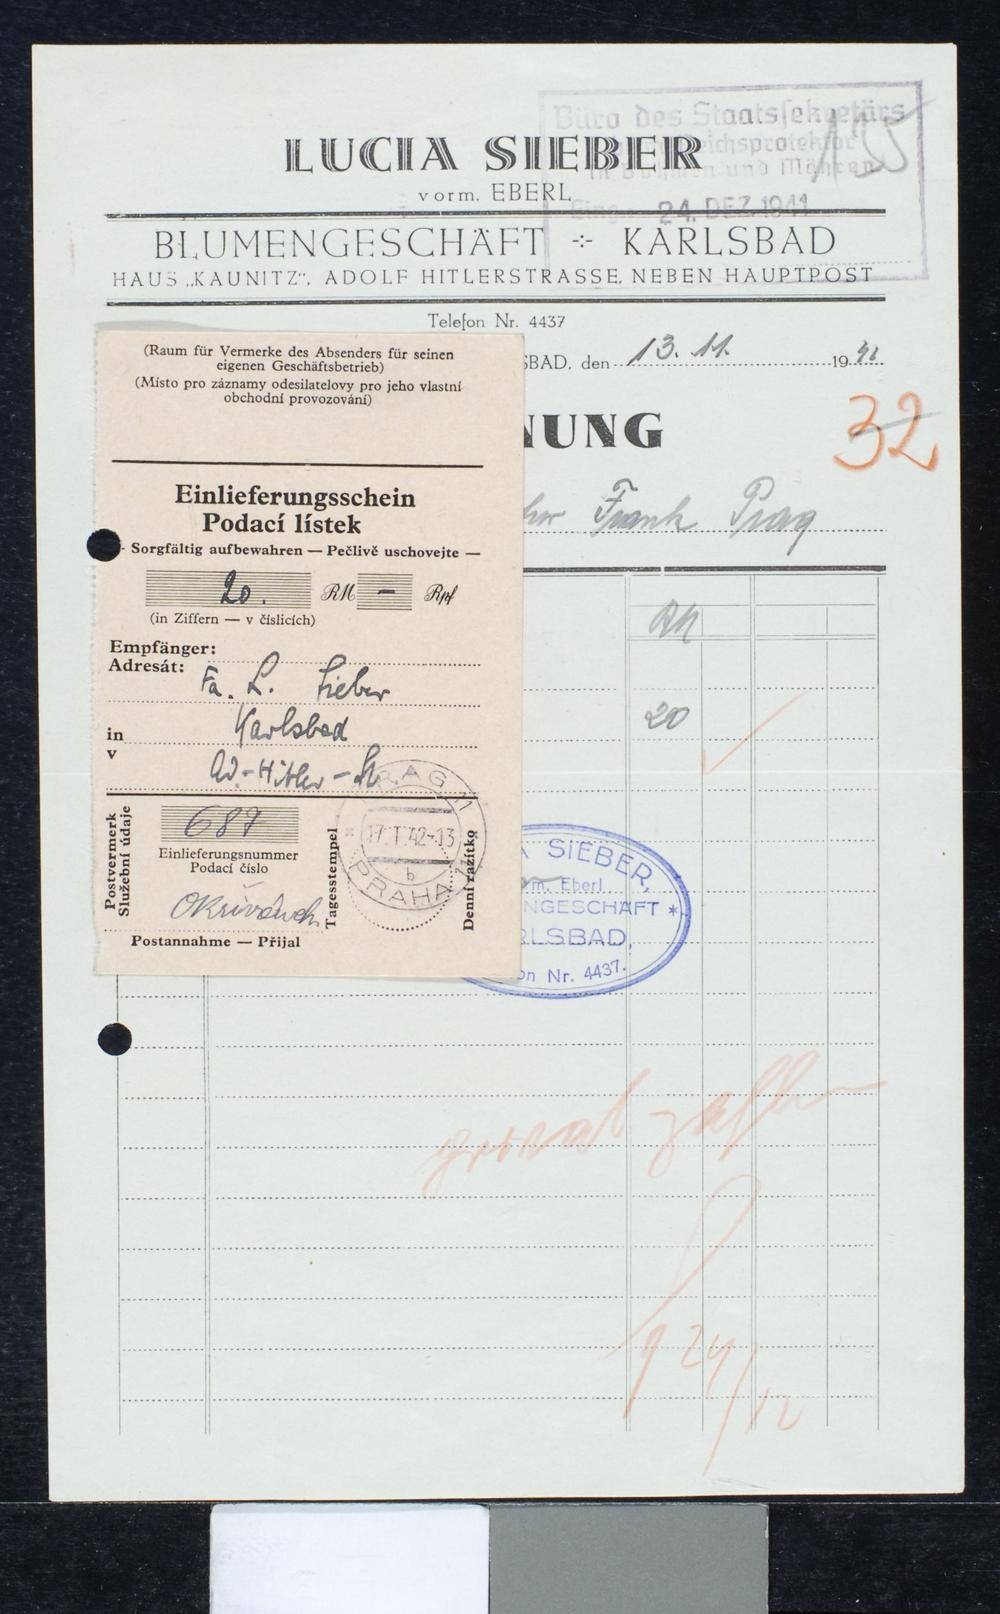 Büro des Staatssekretärs
Reichsprotektor
in Böhmen und Mähren
Eing.: 24. DEZ. 1941
115
LUCIA SIEBER
vorm. EBERL
BLUMENGESCHÄFT -:- KARLSBAD
HAUS „KAUNITZ“, ADOLF HITLERSTRASSE, NEBEN HAUPTPOST
Telefon Nr. 4437
SBAD, den 13. 11. 19 41
NUNG
32
Frank Prag
RM
20
(Raum für Vermerke des Absenders für seinen
eigenen Geschäftsbetrieb)
(Místo pro záznamy odesilatelovy pro jeho vlastní
obchodní provozování)
Einlieferungsschein
Podací lístek
- Sorgfältig aufbewahren — Pečlivě uschovejte —
20. RM — Rpf
(in Ziffern — v číslicích)
Empfänger:
Adresát:
Fa. L. Sieber
in Karlsbad
v
Ad.-Hitler-Str.
Postvermerk
Služební údaje
687
Einlieferungsnummer
Podací číslo
Postannahme — Přijal
Tagesstempel
Denní razítko
PRAG 11
17. I. 42-13
b
PRAHA 11
A SIEBER,
m. Eberl
NGESCHÄFT *
RLSBAD,
on Nr. 4437.
privat zahlen
24/12